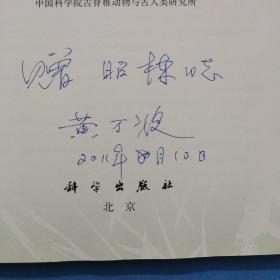 中国科学院古脊椎动物与古人类研究所
赠 昭栋同志
黄万波
2011年8月13日
科学出版社
北京